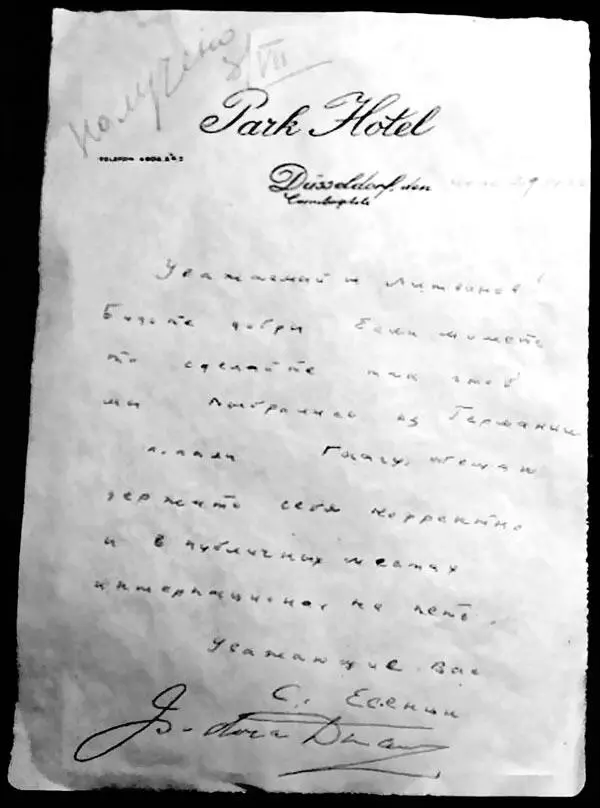 получено
3/VII
Park Hotel
Düsseldorf, den
Уважаемый т Литвинов!
Будьте добры Если можете
то сделайте так чтоб
мы выбрались из Германии
Гаагу, обещаю
держать себя корректно
и в публичных местах
интернационал не петь.
Уважающие Вас
С. Есенин
Isadora Duncan